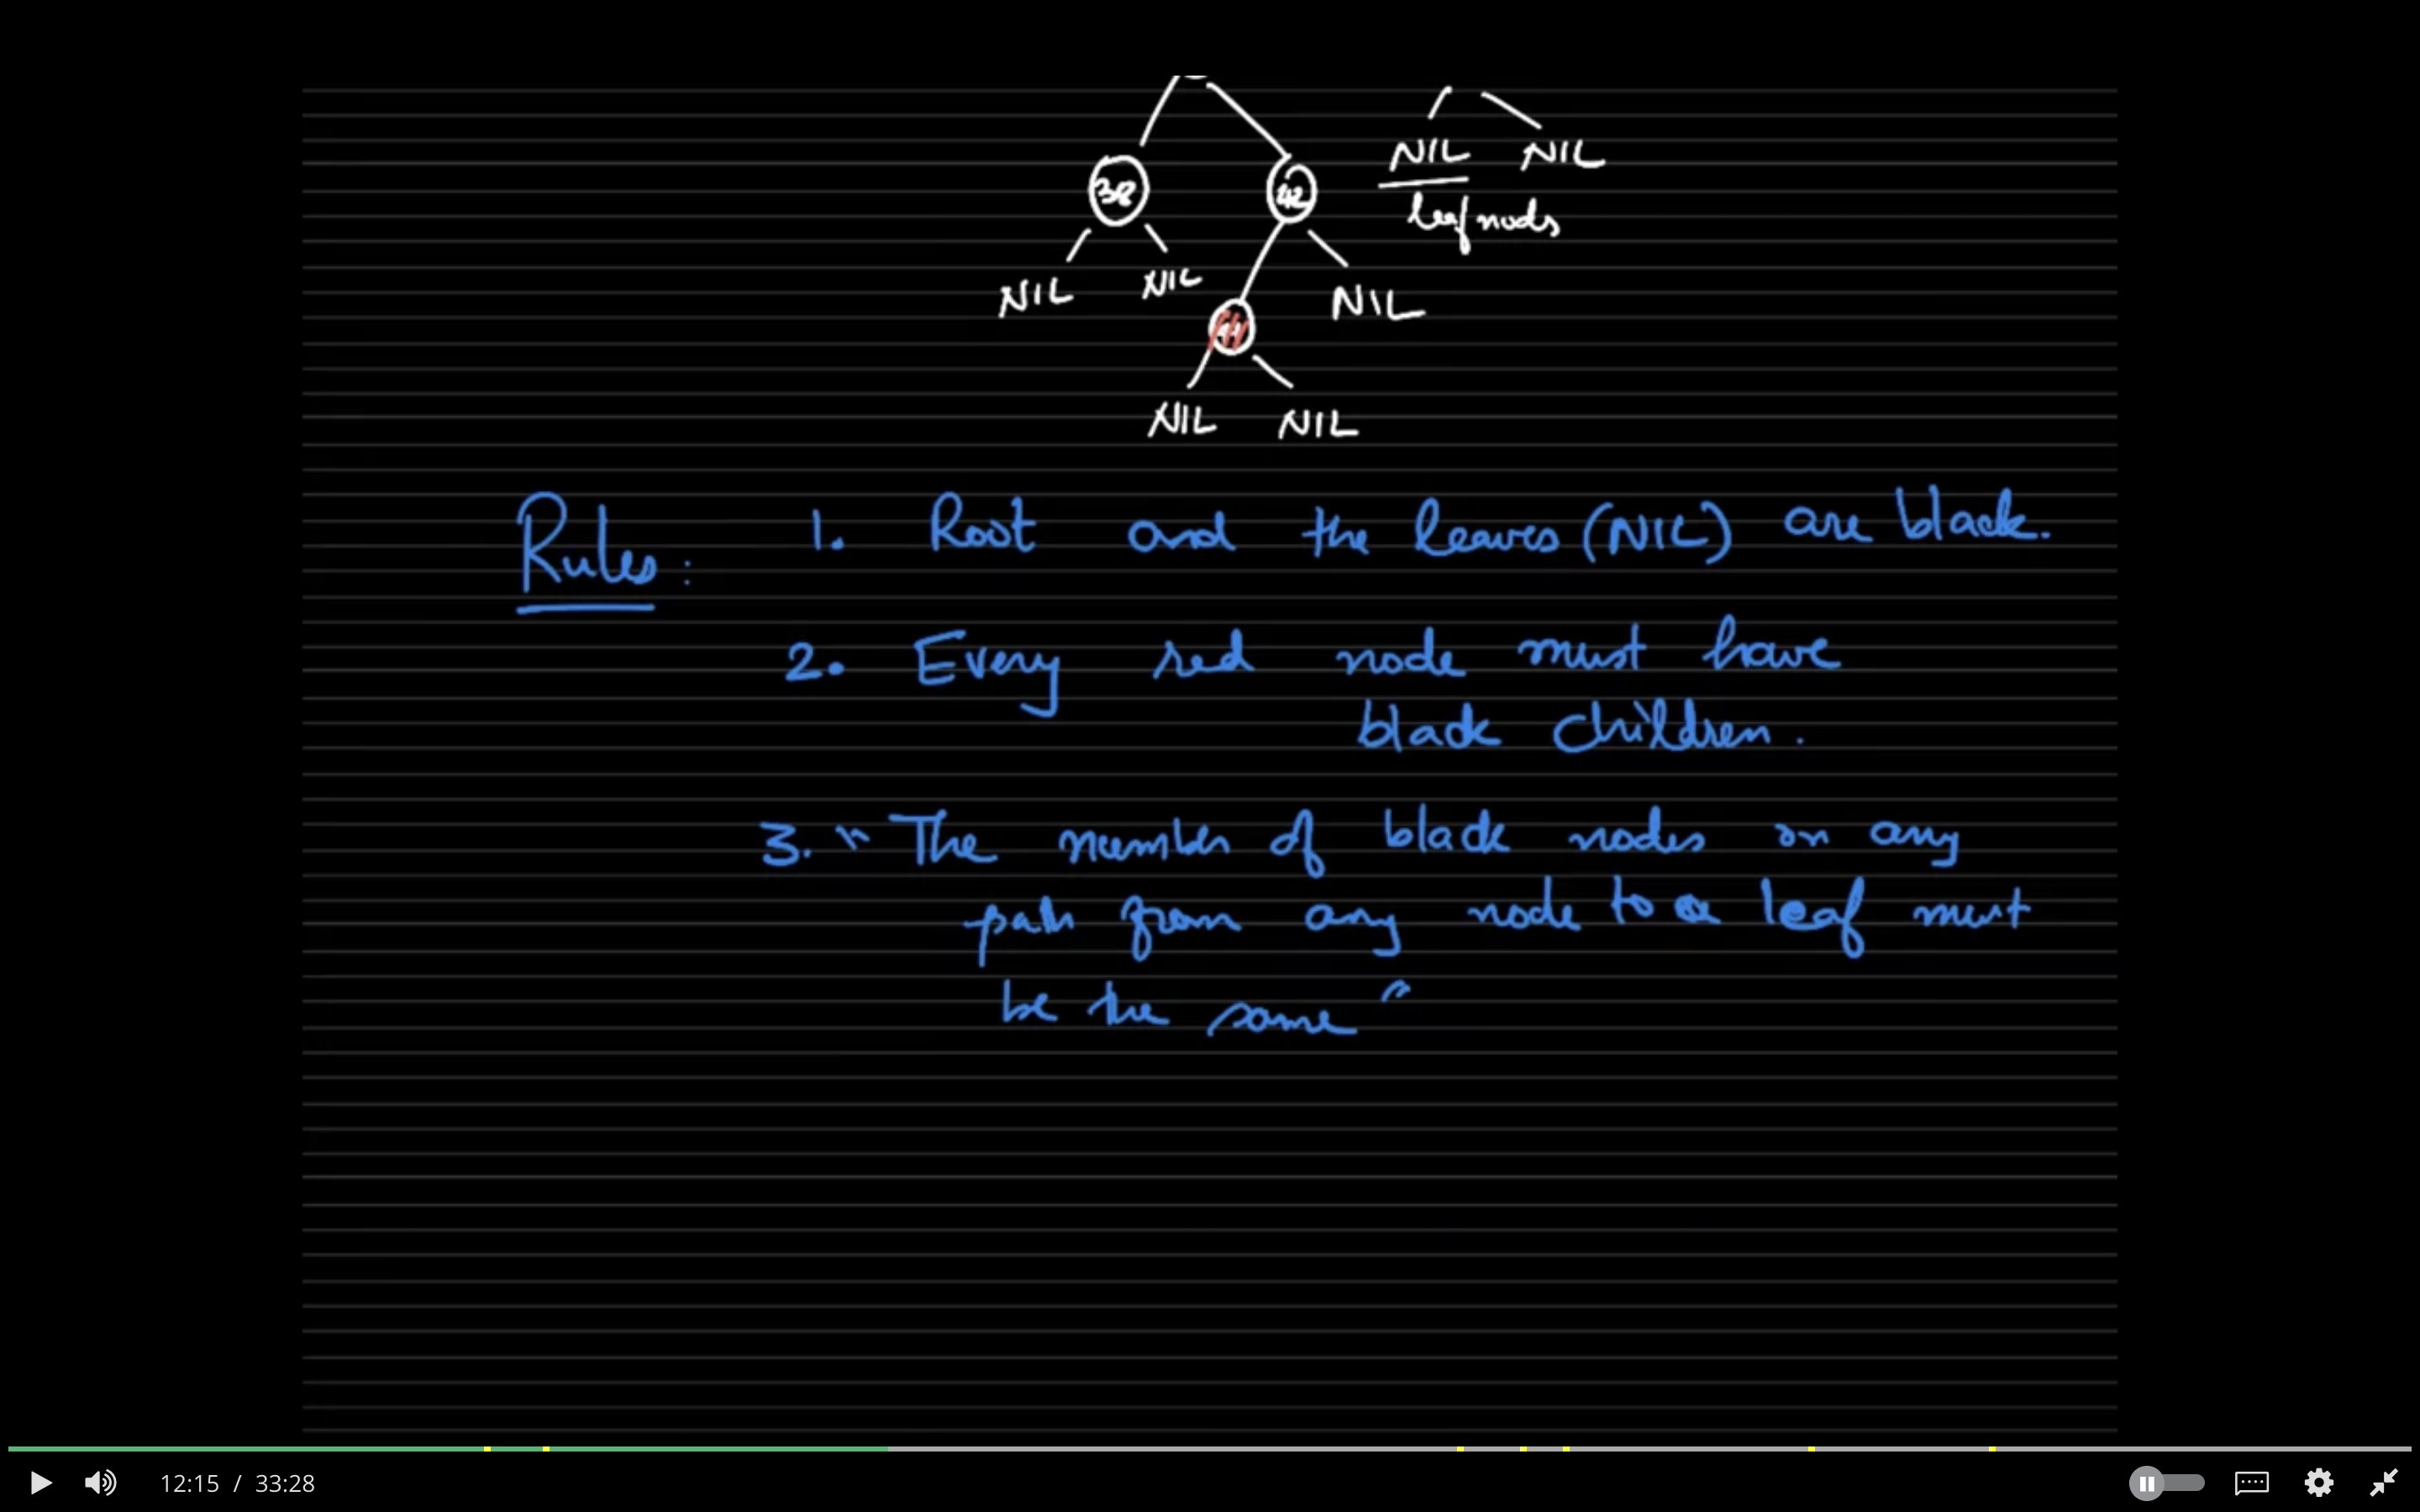 38 42 NIL NIL
leaf nods
NIL NIL NIL
NIL NIL
Rules: 1. Root and the leaves (NIL) are black.
2. Every red node must have
black children.
3. "The number of black nodes on any
path from any node to a leaf must
be the same"
12:15 / 33:28